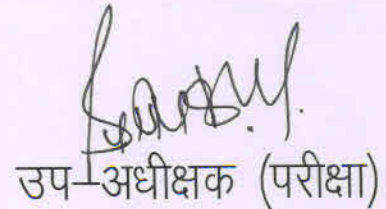 उप-अधीक्षक (परीक्षा)